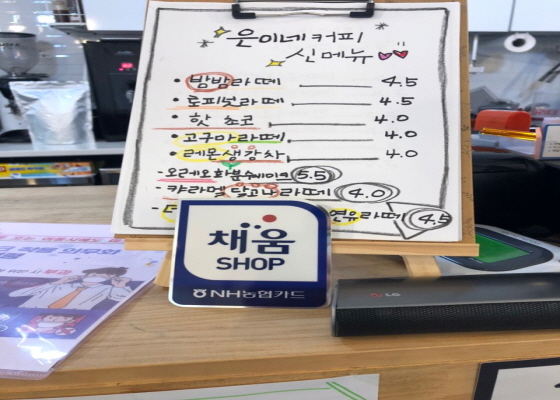 은이네커피
신메뉴
• 밤밤라떼 4.5
• 토피넛라떼 4.5
• 핫 쵸코 4.0
• 고구마라떼 4.0
• 레몬생강차 4.0
- 오레오화분쉐이크 5.5
- 카라멜달고나라떼 4.0
연유라떼 4.5
채움
SHOP
NH농협카드
LG